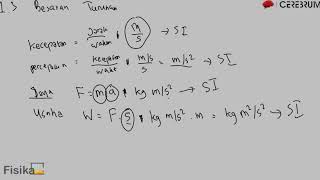 1.3 Besaran Turunan
CEREBRUM
kecepatan = jarak/waktu = m/s → SI
percepatan = kecepatan/waktu = m/s/s = m/s² → SI
Gaya F = m a = kg m/s² → SI
Usaha W = F . s = kg m/s² . m = kg m²/s² → SI
Fisika